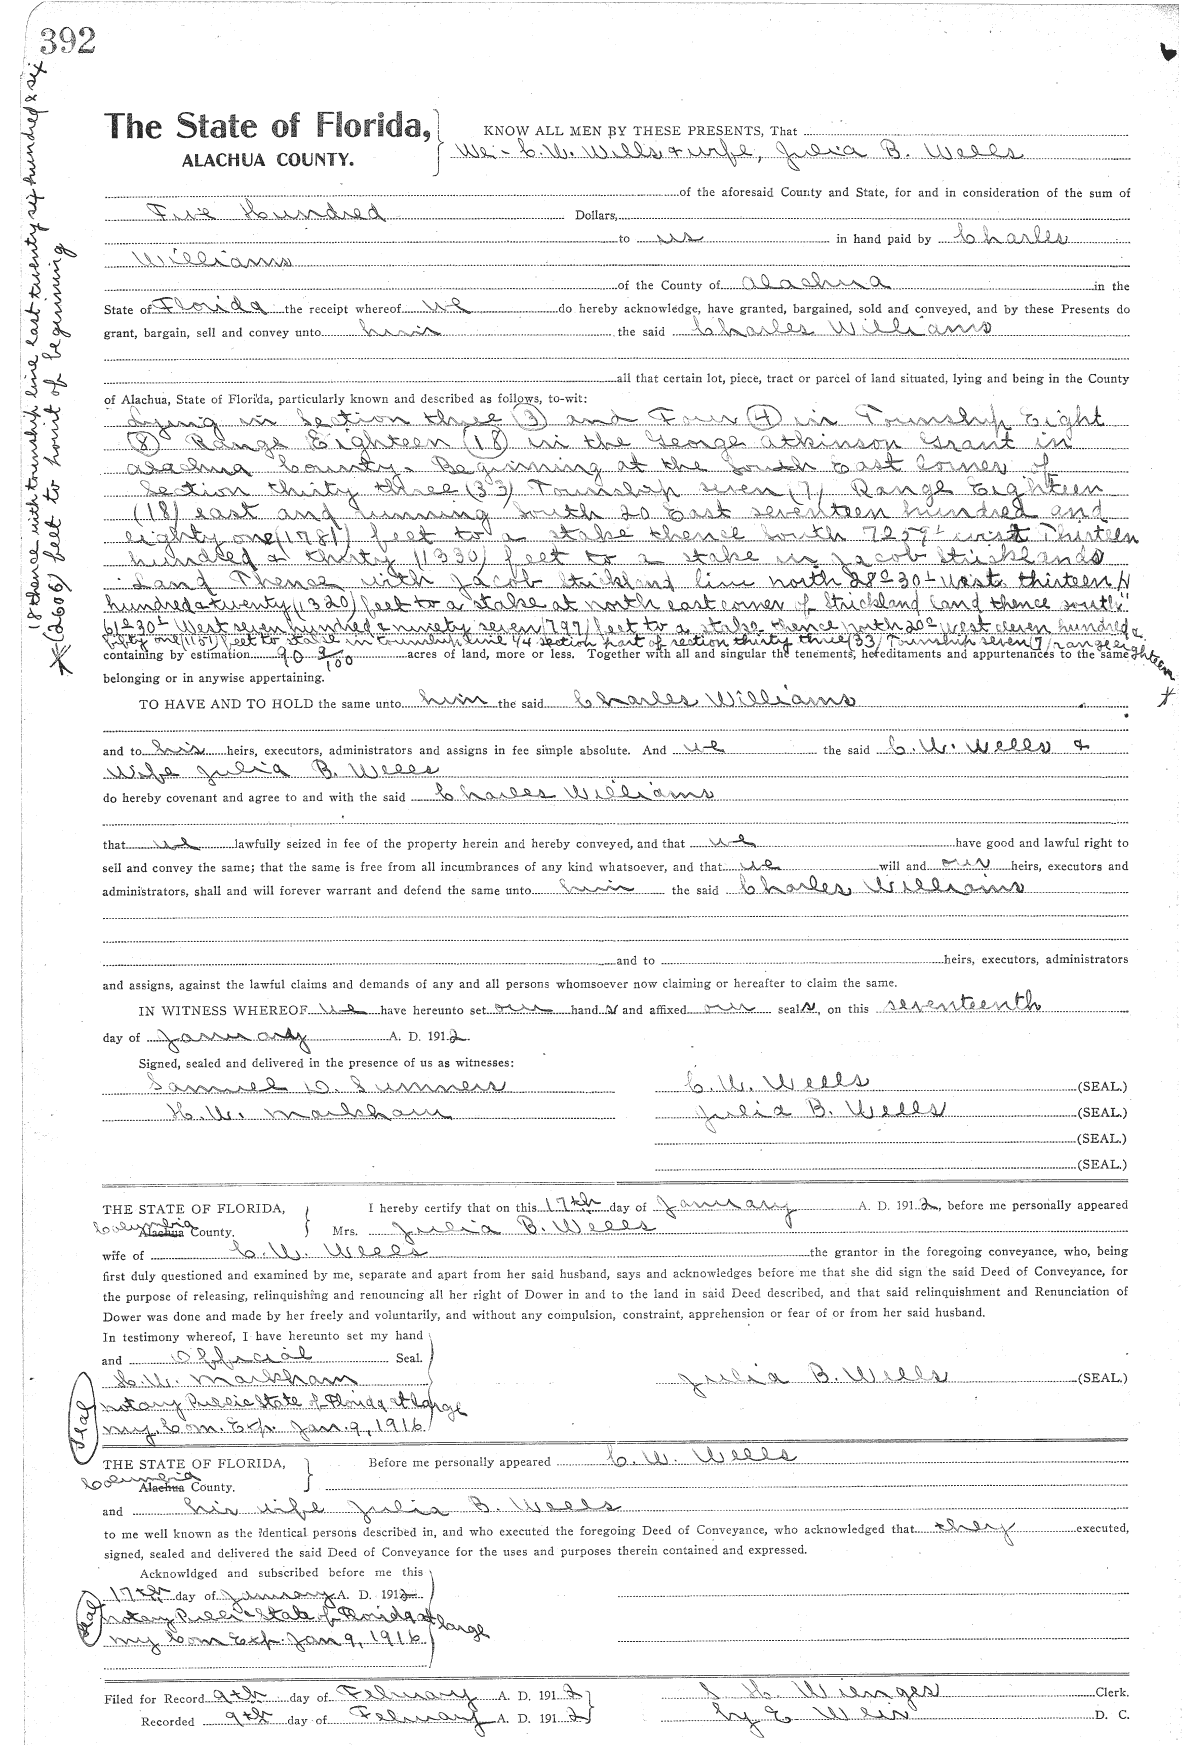 392
The State of Florida,
ALACHUA COUNTY.
KNOW ALL MEN BY THESE PRESENTS, That
We - C. W. Wells & wife, Julia B. Wells
of the aforesaid County and State, for and in consideration of the sum of
Five Hundred Dollars,
to us in hand paid by Charles
Williams
of the County of Alachua in the
State of Florida the receipt whereof we do hereby acknowledge, have granted, bargained, sold and conveyed, and by these Presents do
grant, bargain, sell and convey unto him the said Charles Williams
all that certain lot, piece, tract or parcel of land situated, lying and being in the County
of Alachua, State of Florida, particularly known and described as follows, to-wit:
Lying in Section three (3) and Four (4) in Township Eight
(8) Range Eighteen (18) in the George Atkinson Grant in
Alachua County. Beginning at the South East Corner of
Section thirty three (33) Township seven (7) Range Eighteen
(18) east and running South 20 East seventeen hundred and
eighty one (1781) feet to a stake thence South 72 59 west Thirteen
hundred & thirty (1330) feet to a stake in Jacob Stricklands
Land Thence with Jacob Strickland line north 28° 30 West thirteen
hundred & twenty (1320) feet to a stake at north east corner of Strickland land thence south
61° 30 West seven hundred & ninety seven (797) feet to a stake thence north 20° West eleven hundred &
fifty one (1151) feet to stake in township line 1/4 section part of section thirty three (33) Township seven (7) range eighteen *
18 thence with township line East twenty six hundred & six
* (2606) feet to point of beginning
containing by estimation 90 3/100 acres of land, more or less. Together with all and singular the tenements, hereditaments and appurtenances to the same
belonging or in anywise appertaining.
TO HAVE AND TO HOLD the same unto him the said Charles Williams
and to his heirs, executors, administrators and assigns in fee simple absolute. And we the said C. W. Wells &
Wife Julia B. Wells
do hereby covenant and agree to and with the said Charles Williams
that we lawfully seized in fee of the property herein and hereby conveyed, and that we have good and lawful right to
sell and convey the same; that the same is free from all incumbrances of any kind whatsoever, and that we will and our heirs, executors and
administrators, shall and will forever warrant and defend the same unto him the said Charles Williams
and to heirs, executors, administrators
and assigns, against the lawful claims and demands of any and all persons whomsoever now claiming or hereafter to claim the same.
IN WITNESS WHEREOF we have hereunto set our hand s and affixed our seals, on this seventeenth
day of January A. D. 1912
Signed, sealed and delivered in the presence of us as witnesses:
Samuel D. Summers C. W. Wells (SEAL.)
H. W. Markham Julia B. Wells (SEAL.)
(SEAL.)
(SEAL.)
THE STATE OF FLORIDA, I hereby certify that on this 17th day of January A. D. 1912, before me personally appeared
Columbia Alachua County. Mrs. Julia B. Wells
wife of C. W. Wells the grantor in the foregoing conveyance, who, being
first duly questioned and examined by me, separate and apart from her said husband, says and acknowledges before me that she did sign the said Deed of Conveyance, for
the purpose of releasing, relinquishing and renouncing all her right of Dower in and to the land in said Deed described, and that said relinquishment and Renunciation of
Dower was done and made by her freely and voluntarily, and without any compulsion, constraint, apprehension or fear of or from her said husband.
In testimony whereof, I have hereunto set my hand
and Official Seal.
H. W. Markham Julia B. Wells (SEAL.)
Seal
Notary Public State of Florida at large
my. Com. Exp. Jan. 9, 1916
THE STATE OF FLORIDA, Before me personally appeared C. W. Wells
Columbia Alachua County.
and his wife Julia B. Wells
to me well known as the identical persons described in, and who executed the foregoing Deed of Conveyance, who acknowledged that they executed,
signed, sealed and delivered the said Deed of Conveyance for the uses and purposes therein contained and expressed.
Acknowldged and subscribed before me this
17th day of January A. D. 1912
Seal
Notary Public State of Florida at large
my Com Exp. Jan 9, 1916
Filed for Record 9th day of February A. D. 1912 S. H. Wienges Clerk.
Recorded 9th day of February A. D. 1912 by E Weir D. C.